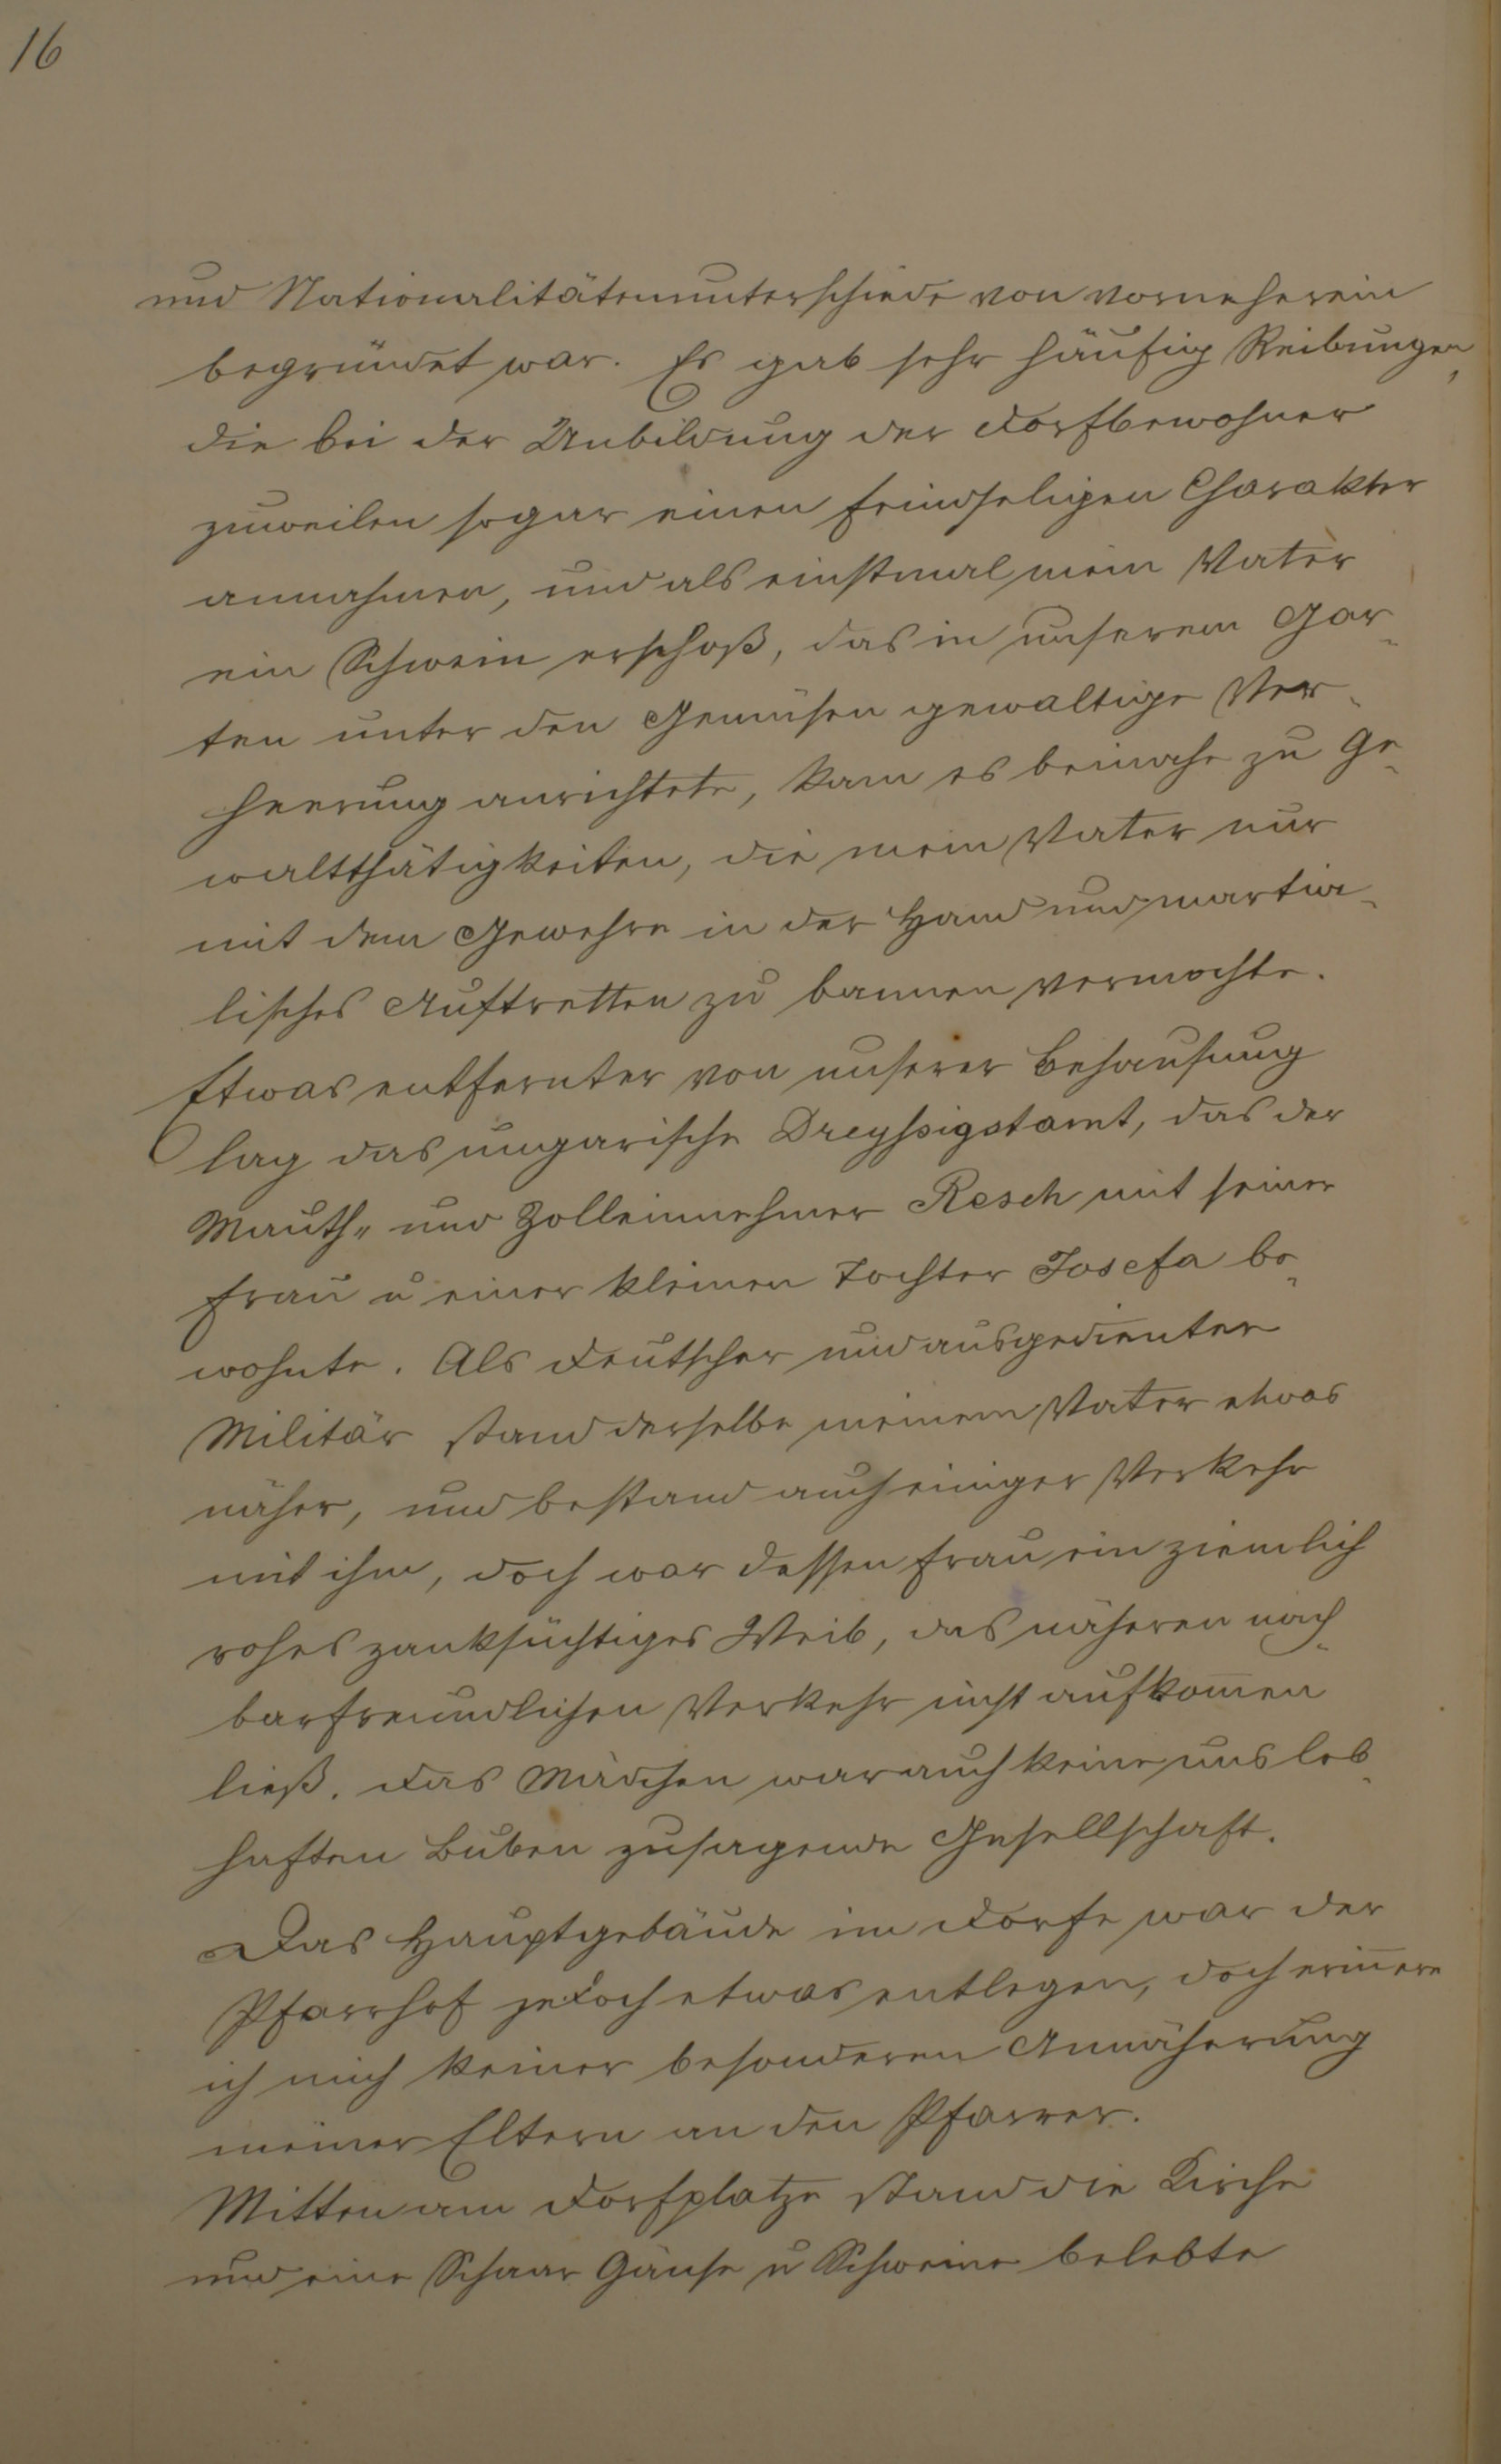 16
und Nationalitätenunterschiede von vorneherein
begründet war. Es gab sehr häufig Reibungen,
die bei der Unbildung der Dorfbewohner
zuweilen sogar einen feindseligen Charakter
annahmen, und als einstmal mein Vater
ein Schwein erschoß, das in unserem Gar-
ten unter den Gemüsen gewaltige Ver-
heerung anrichtete, kam es beinahe zu Ge-
waltthätigkeiten, die mein Vater nur
mit dem Gewehre in der Hand und martia-
lisches Auftretten zu bannen vermochte.
Etwas entfernter von unserer Behausung
lag das ungarische Dreyssigstamt, das der
Mauth- und Zolleinnehmer Resch mit seiner
Frau u einer kleinen Tochter Josefa be-
wohnte. Als Deutscher und ausgedienter
Militär stand derselbe meinem Vater etwas
näher, und bestand auch einiger Verkehr
mit ihm, doch war dessen Frau ein ziemlich
rohes zanksüchtiges Weib, das näheren nach-
barfreundlichen Verkehr nicht aufkom̅en
ließ. Das Mädchen war auch keine uns leb-
haften Buben zusagende Gesellschaft.
Das Hauptgebäude im Dorfe war der
Pfarrhof jedoch etwas entlegen, doch erin̅ere
ich mich keiner besonderen Annäherung
meiner Eltern an den Pfarrer.
Mitten am Dorfplatze stand die Kirche
und eine Schaar Gänse u Schweine belebte